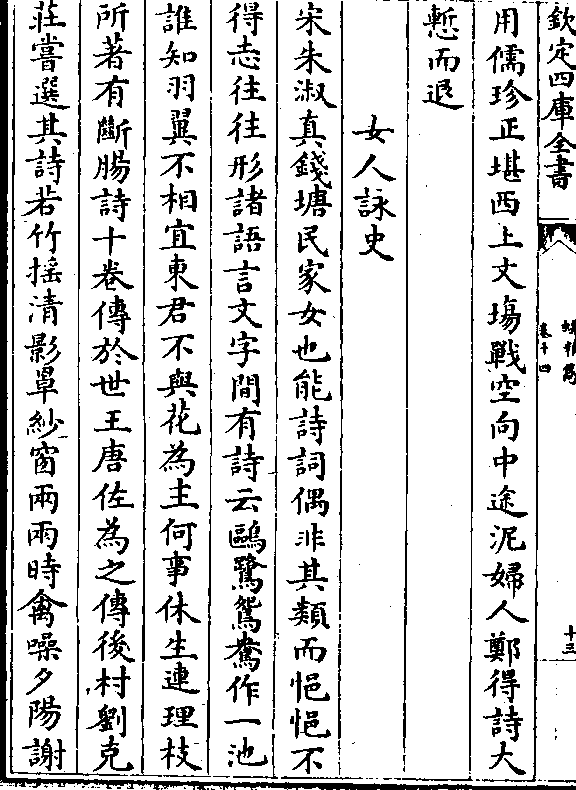 欽定四庫全書
卷十四
十三
用儒珍正堪西上文塲戰空向中途泥婦人鄭得詩大
慙而退
女人詠史
宋朱淑真錢塘民家女也能詩詞偶非其類而悒悒不
得志往往形諸語言文字間有詩云鷗鷺鴛鴦作一池
誰知羽翼不相宜東君不與花為主何事休生連理枝
所著有斷腸詩十卷傳於世王唐佐為之傳後村劉克
莊嘗選其詩若竹摇清影罩紗窗兩兩時禽噪夕陽謝